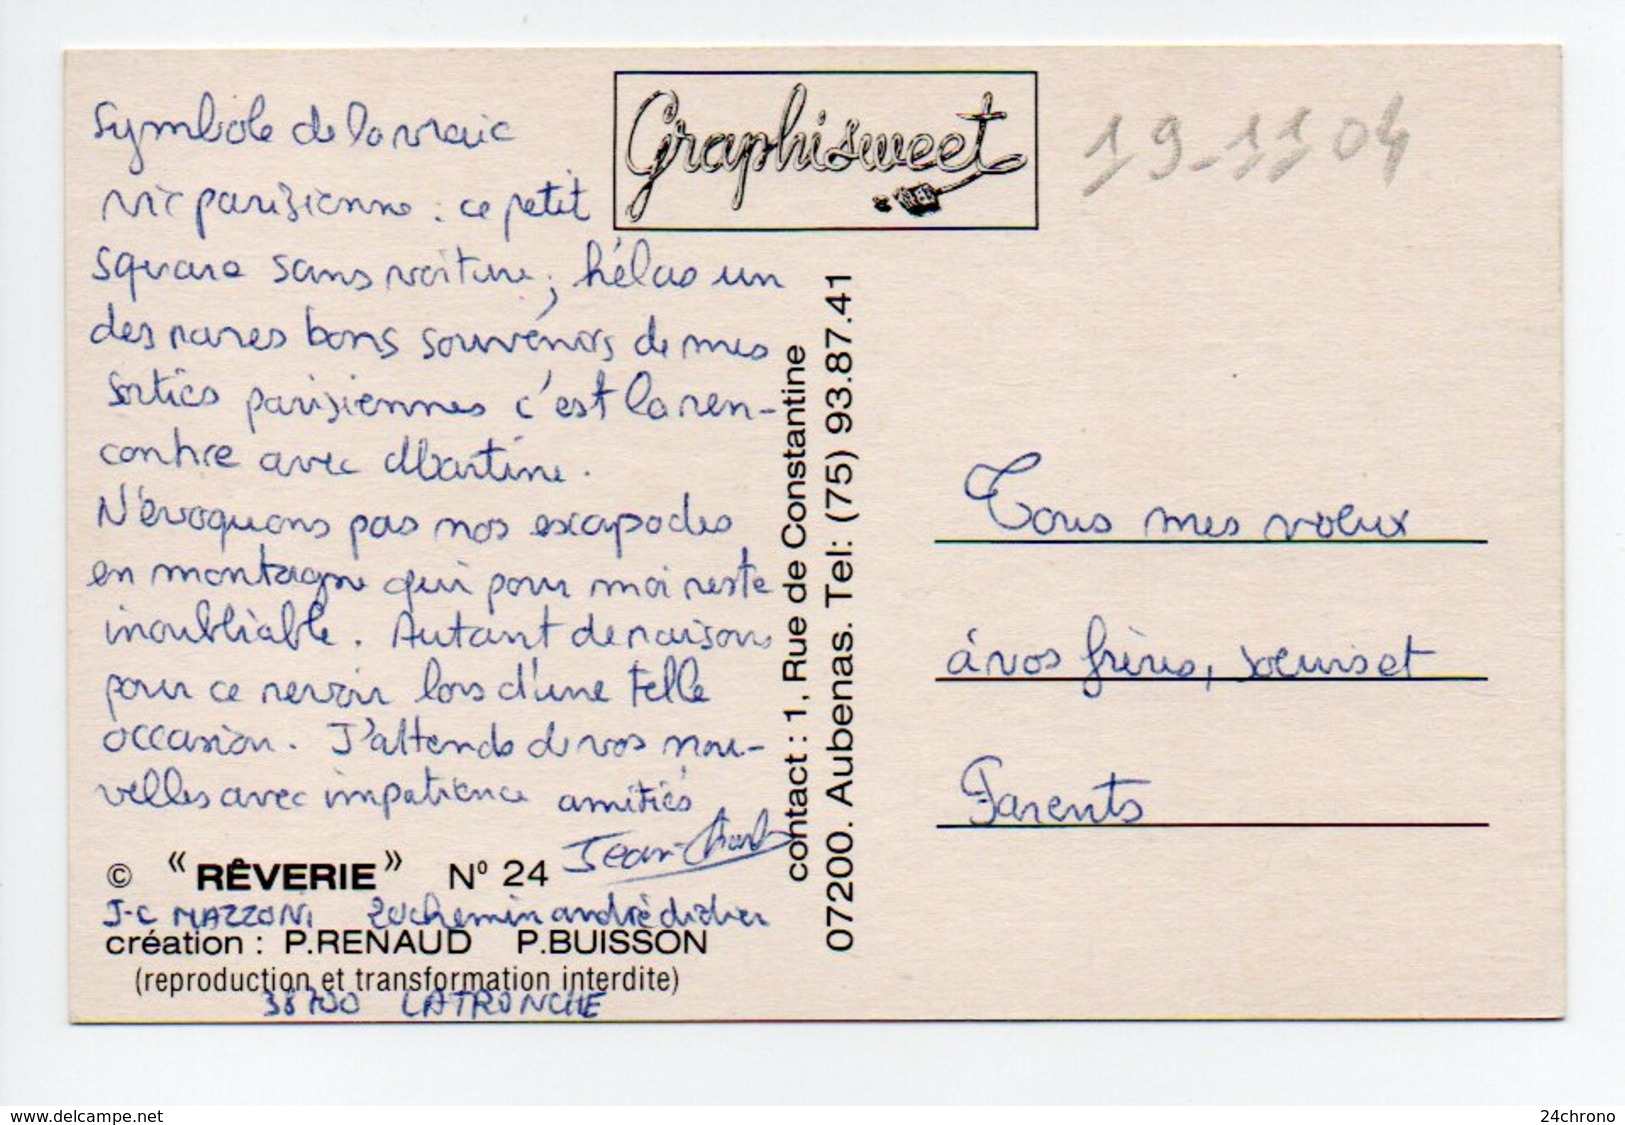 Symbole de la vraie
vie parisienne : ce petit
square sans voiture, hélas un
des rares bons souvenirs de mes
sorties parisiennes c'est la ren-
contre avec Martine.
N'évoquons pas nos escapades
en montagne qui pour moi reste
inoubliable. Autant de raisons
pour ce revoir lors d'une telle
occasion. J'attends de vos nou-
velles avec impatience amitiés
Jean-Charles
© "RÊVERIE" N° 24
J-C MAZZONI 20 chemin andré didier
création : P.RENAUD P.BUISSON
(reproduction et transformation interdite)
38700 LA TRONCHE
Graphisweet
contact : 1, Rue de Constantine
07200. Aubenas. Tel: (75) 93.87.41
19-11 04
Tous mes voeux
à vos frères, soeurs et
Parents
www.delcampe.net
24chrono